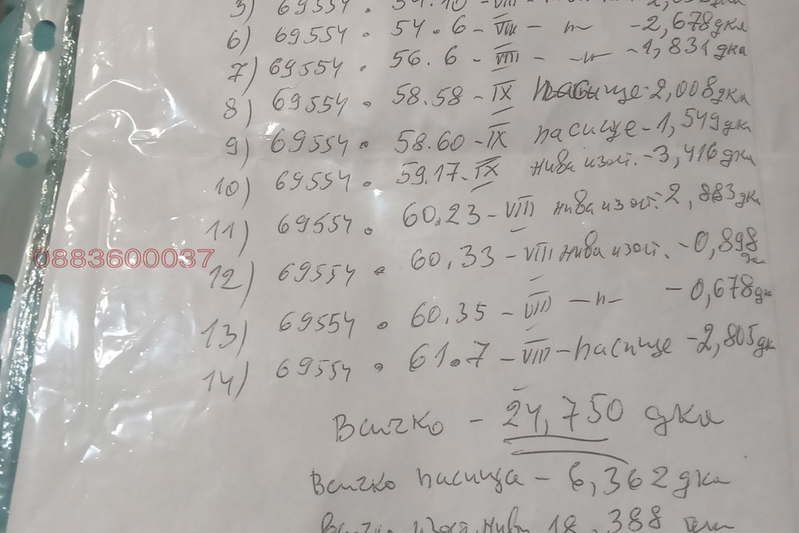 5) 69554 . 54.10 - VIII
6) 69554 . 54.6 - VIII - п - -2,678 дка
7) 69554 . 56.6 - VIII - -п- -1,831 дка
8) 69554 . 58.58 - IX пасище - 2,008 дка
9) 69554 . 58.60 - IX пасище - 1,549 дка
10) 69554 . 59.17 - IX нива изост. - 3,416 дка
11) 69554 . 60.23 - VIII нива изост. 2,883 дка
12) 69554 . 60.33 - VIII нива изост. - 0,898 дка
0883600037
13) 69554 . 60.35 - VIII - п - - 0,678 дка
14) 69554 . 61.7 - VIII - пасище - 2,805 дка
Всичко - 24,750 дка
Всичко пасища - 6,362 дка
Всичко изост. ниви 18,388 дка